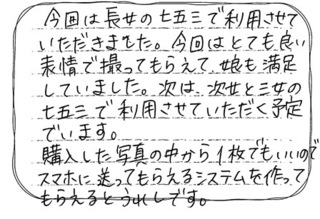 今回は長女の七五三で利用させて
いただきました。今回はとても良い
表情で撮ってもらえて、娘も満足
していました。次は、次女と三女の
七五三で利用させていただく予定
でいます。
購入した写真の中から1枚でもいいので
スマホに送ってもらえるシステムを作って
もらえるとうれしいです。